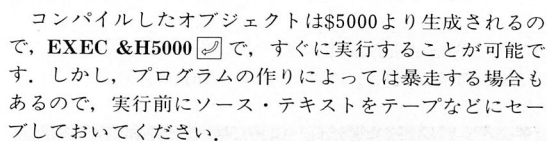 コンパイルしたオブジェクトは$5000より生成されるの
で，EXEC &H5000 ⏎ で，すぐに実行することが可能で
す．しかし，プログラムの作りによっては暴走する場合も
あるので，実行前にソース・テキストをテープなどにセー
ブしておいてください．